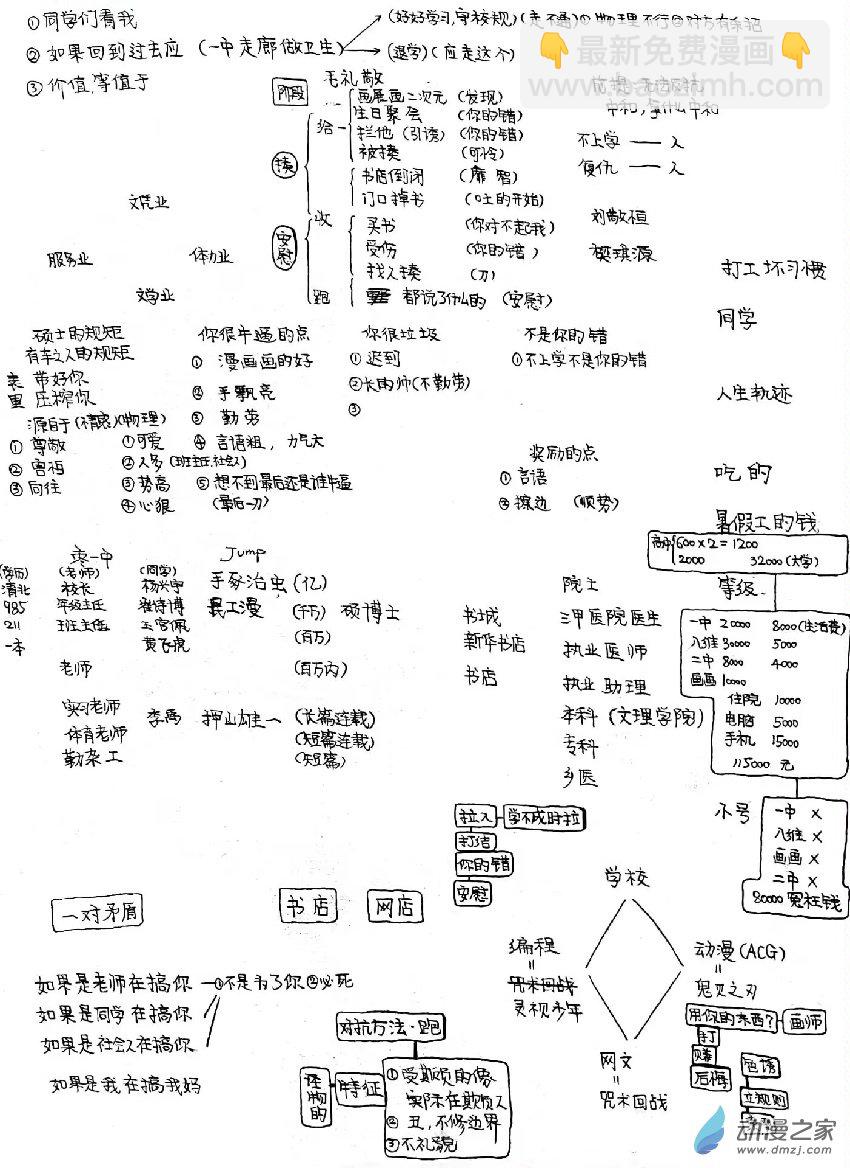 ①同学们看我
②如果回到过去应（一中走廊做卫生）
(好好学习,守校规)
(退学)（应走这个）
③价值,等值于
最新免费漫画
毛礼敬
阶段
揍
安慰
给
画展画二次元（发现）
生日聚会（你的错）
拦他（引诱）（你的错）
被揍（可怜）
书店倒闭
门口掉书（吐的开始）
收
买书（你对不起我）
受伤（你的错）
找人揍（刀）
跑
都说了什么的（安慰）
不上学——人
复仇——人
刘敬恒
樊琪源
文艺业
服务业
体力业
文学业
打工坏习惯
同学
人生轨迹
吃的
暑假工的钱
硕士的规矩
有辈之人的规矩
表 带好你
里 压榨你
①尊敬
②害怕
③向往
①可爱
②人多（班主任,社会人）
③势高
④心狠（最后一刀）
你很牛逼的点
①漫画画的好
②手飘亮
③勤劳
④言语粗，力气大
⑤想不到最后还是谁牛逼
你很垃圾
①迟到
②长的帅（不勤劳）
③
不是你的错
①不上学不是你的错
奖励的点
①言语
②擦边（顺势）
高中 600×2=1200
2000 32000(大学)
等级
一中 20000 8000(生活费)
八维 30000 5000
二中 8000 4000
画画 10000
住院 10000
电脑 5000
手机 15000
115000 元
枣一中
(学历) (老师) (同学)
清北 校长 杨兴宇
985 年级主任 崔诗博
211 班主任 王宫佩
一本 黄飞虎
老师
实习老师 李禹
体育老师
勤杂工
Jump
手冢治虫（亿）
(千万) 硕博士
(百万)
(百万内)
押山雄一（长篇连载）
(短篇连载)
(短篇)
书城
新华书店
书店
院士
三甲医院医生
执业医师
执业助理
本科（文理学院）
专科
乡医
小号
一中 X
八维 X
画画 X
二中 X
80000 冤枉钱
拉入 学不成时拉
打结
你的错
安慰
一对矛盾
书店
网店
学校
编程
=
咒术回战
灵视少年
动漫(ACG)
=
鬼灭之刃
网文
=
咒术回战
如果是老师在搞你 ①不是为了你②必死
如果是同学在搞你
如果是社会人在搞你
如果是我在搞我好
对抗方法·跑
怪物的
特征
①受欺负的像
实际在欺负人
②丑，不修边界
③不礼貌
用你的东西？ 画师
打
赚
后悔
色诱
立规则
动漫之家
www.dmzj.com